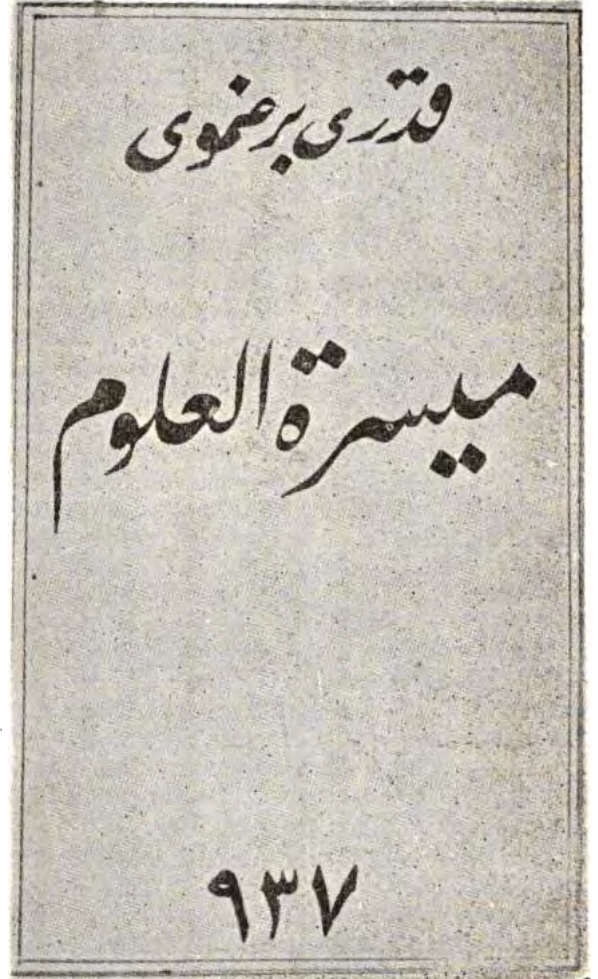 قدری برغموی
میسرة العلوم
٩٣٧